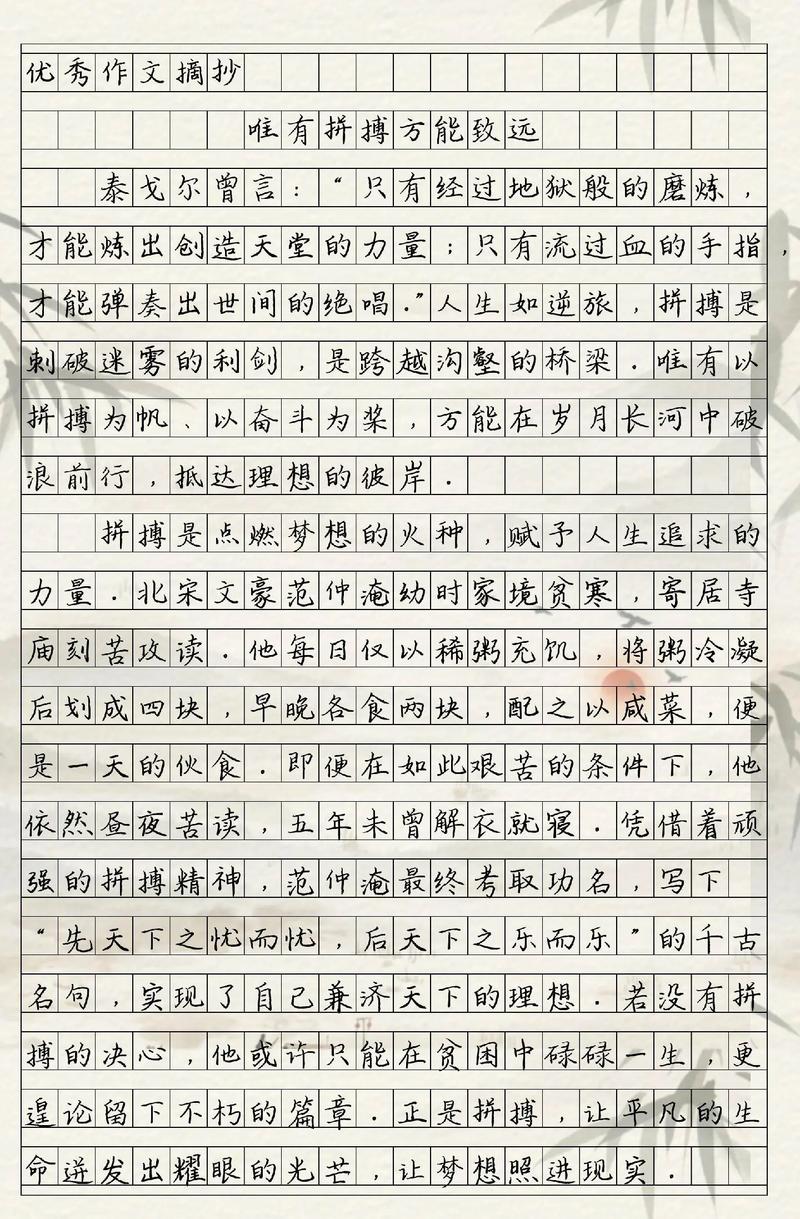 优秀作文摘抄
唯有拼搏方能致远
泰戈尔曾言：“只有经过地狱般的磨炼，
才能炼出创造天堂的力量；只有流过血的手指，
才能弹奏出世间的绝唱.”人生如逆旅，拼搏是
刺破迷雾的利剑，是跨越沟壑的桥梁.唯有以
拼搏为帆、以奋斗为桨，方能在岁月长河中破
浪前行，抵达理想的彼岸.
拼搏是点燃梦想的火种，赋予人生追求的
力量.北宋文豪范仲淹幼时家境贫寒，寄居寺
庙刻苦攻读.他每日仅以稀粥充饥，将粥冷凝
后划成四块，早晚各食两块，配之以咸菜，便
是一天的伙食.即便在如此艰苦的条件下，他
依然昼夜苦读，五年未曾解衣就寝.凭借着顽
强的拼搏精神，范仲淹最终考取功名，写下
“先天下之忧而忧，后天下之乐而乐”的千古
名句，实现了自己兼济天下的理想.若没有拼
搏的决心，他或许只能在贫困中碌碌一生，更
遑论留下不朽的篇章.正是拼搏，让平凡的生
命迸发出耀眼的光芒，让梦想照进现实.